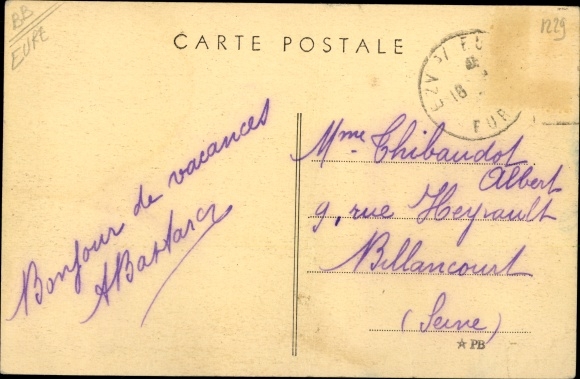 BB
EURE
1229
CARTE POSTALE
EZY
18
EUR
Bonjour de vacances
Mme Thibaudot
Albert
9, rue Heyrault
Billancourt
(Seine)
PB